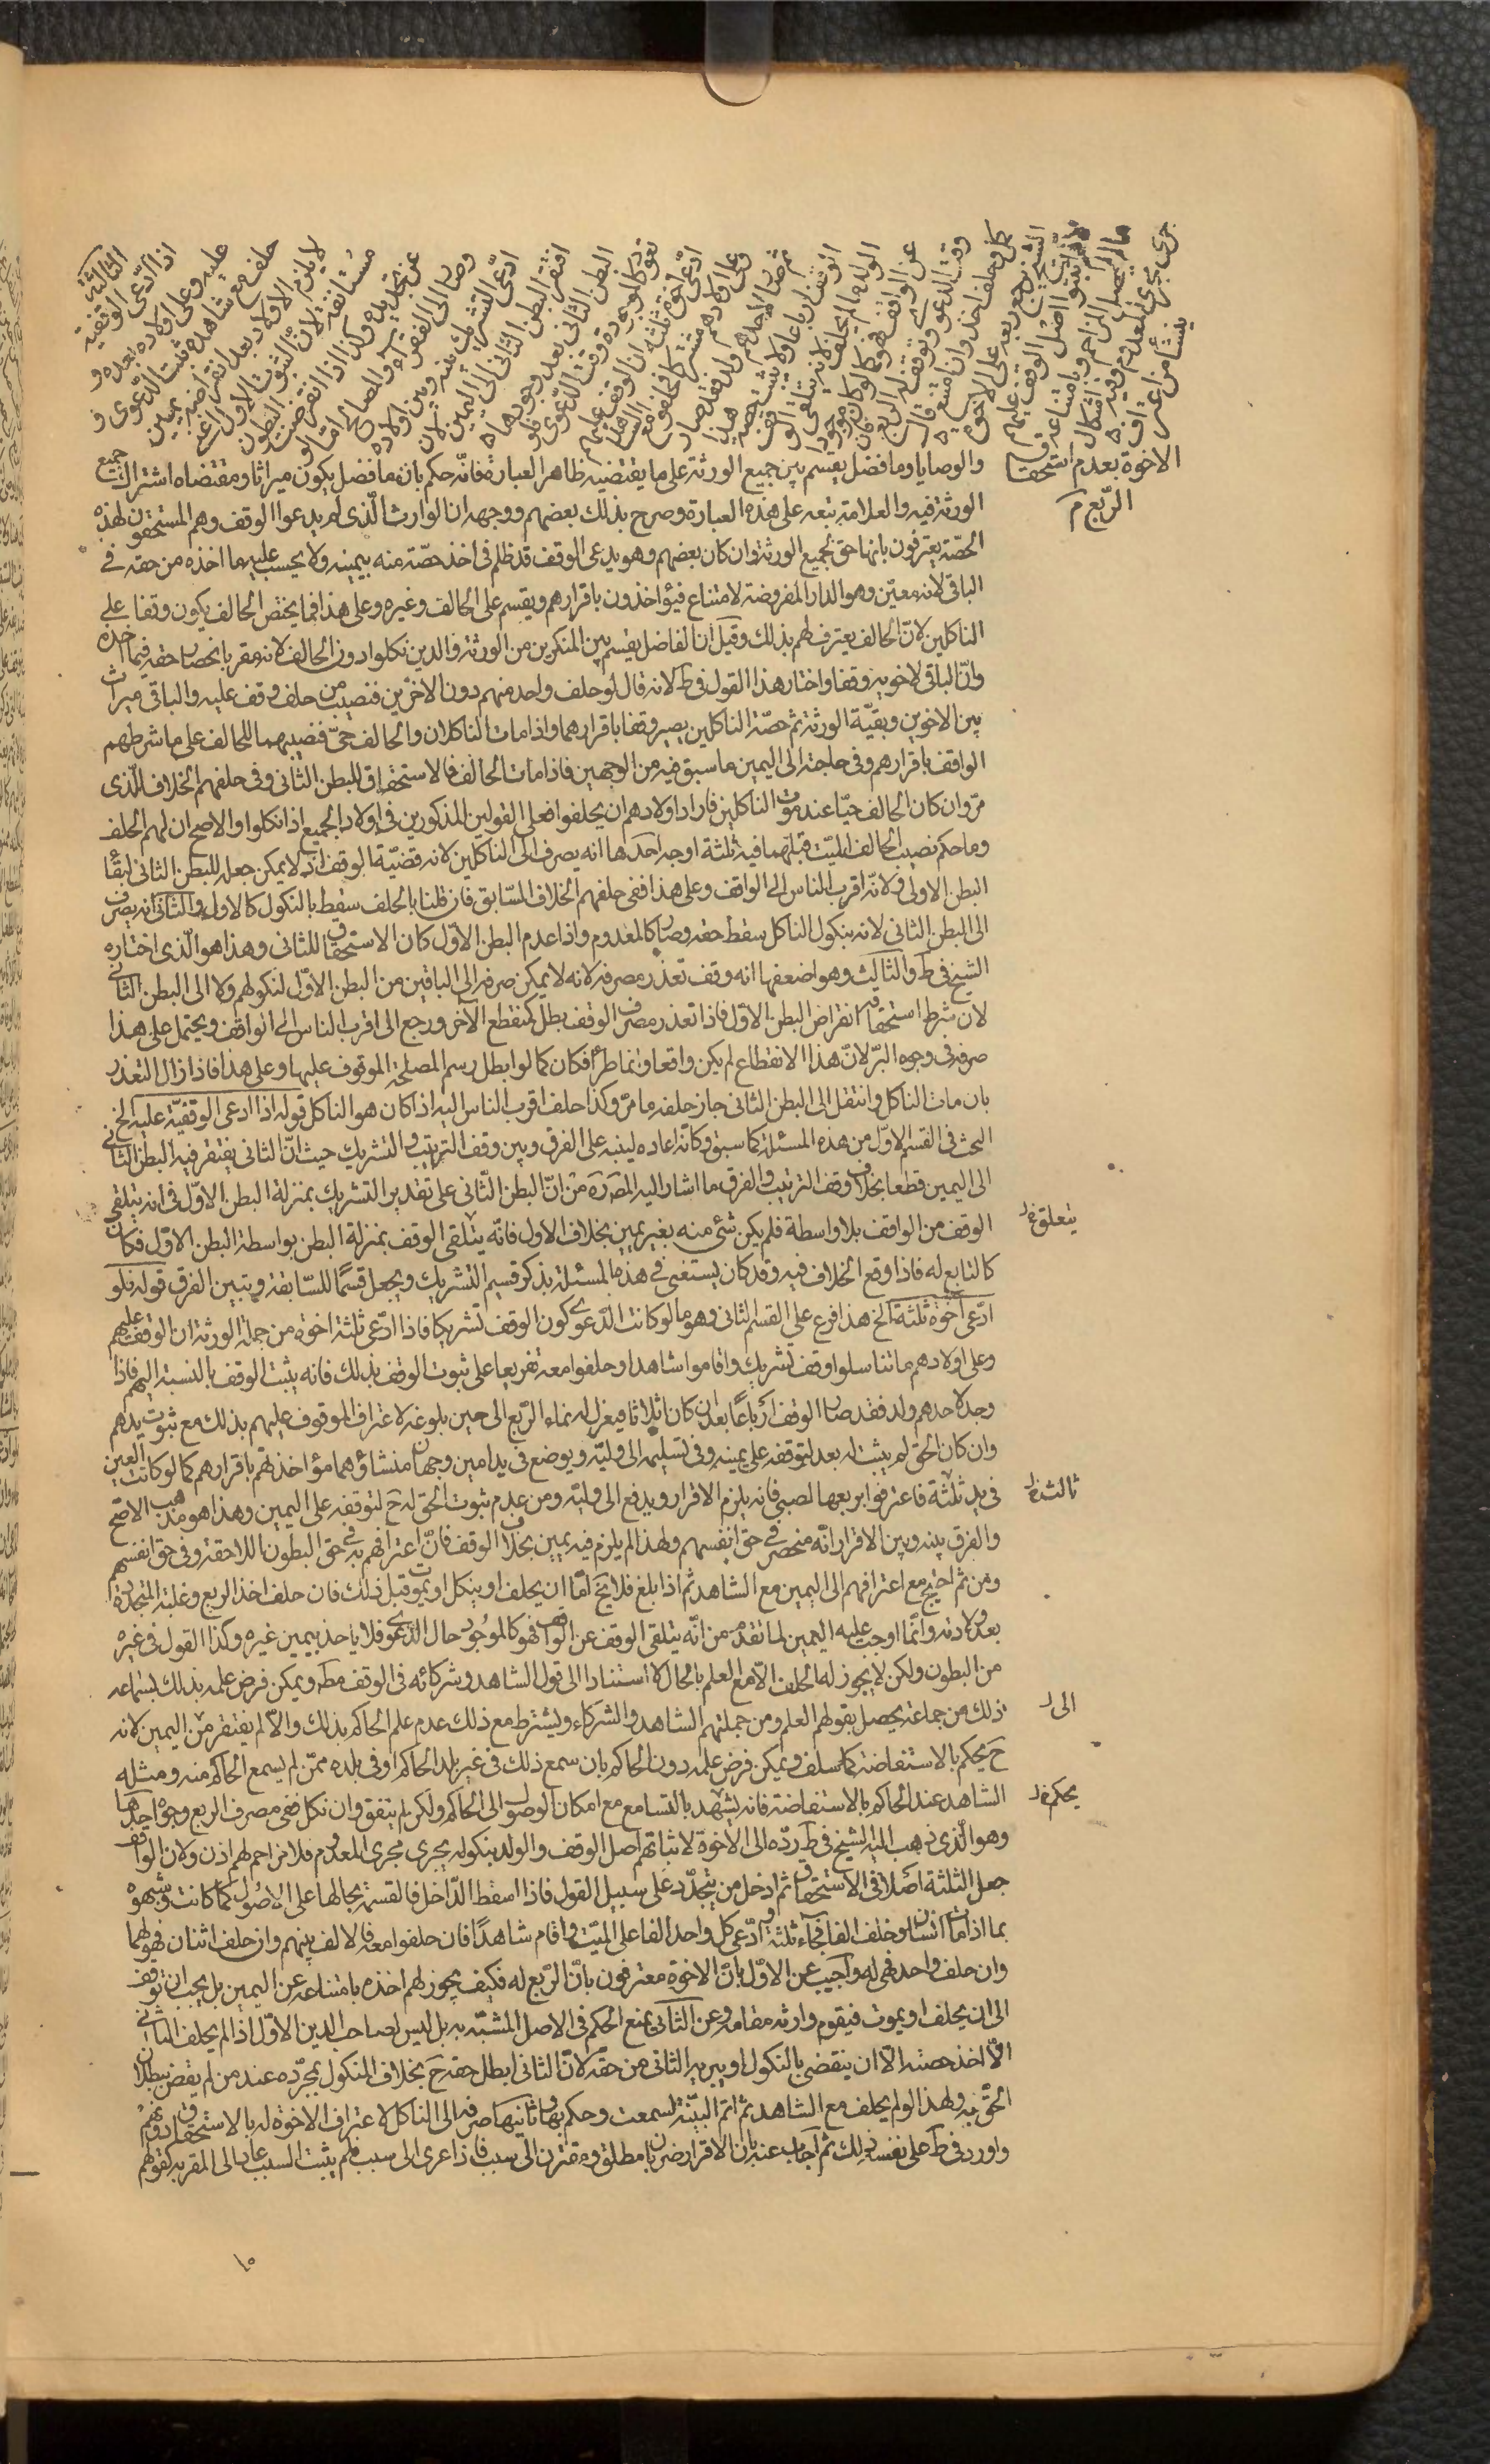 الثالثة
اذا ادّعى الوقفية
عليه وعلى اولاده بعده و
حلف مع شاهده ثبت الدّعوى و
لا يلزم الاولاد بعد انقراضه يمين
مستانفة لان الثبوت الاول اغنى
عن تجديده وكذا اذا انقرضت البطون
وصار الى الفقراء او المصالح اما لو
ادّعى التشريك بينه وبين اولاده
افتقر البطن الثانى الى اليمين لان
البطن الثانى بعد وجودها
تعود كالموجودة وقت الدّعوى فلو
ادّعى اخوة ثلثة ان الوقف عليهم
وعلى اولادهم مشتركا فحلفوا مع الشاهد
ثم صار لاحدهم ولد فقد صار
الوقف ارباعا ولا يثبت حصة هذا
الولد ما لم يحلف لانه يتلقى الوقف
عن الواقف فهو كما لو كان موجودا
وقت الدعوى ويوقف له الربع فان
كمل وحلف اخذ وان امتنع قال
الشيخ يرجع ربعه على الاخوة
لانهم اثبتوا اصل الوقف عليهم
ما لم يحصل المزاحم وبامتناعه
جرى مجرى المعدوم وفيه اشكال
ينشأ من اعتراف
الاخوة بعدم استحقاق
الربع م
والوصايا وما فضل يقسم بين جميع الورثة على ما يقتضيه ظاهر العبارة فانه حكم بان ما فضل يكون ميراثا ومقتضاه اشتراك جميع
الورثة فيه والعلامة تبعه على هذه العبارة وصرح بذلك بعضهم ووجهه ان الوارث الّذى لم يدعوا الوقف وهم المستحقون لهذه
الحصّة يعترفون بانها حق لجميع الورثة وان كان بعضهم وهو يدعى الوقف قد ظلم فى اخذ حصّة منه بيمينه ولا يحسب عليه ما اخذه من حقه فى
الباقى لانه معيّن وهو الدار المفروضة لامتناع فيؤاخذون باقرارهم ويقسم على الحالف وغيره وعلى هذا فما يخص الحالف يكون وقفا على
الناكلين لانّ الحالف يعترف لهم بذلك وقيل ان الفاضل يقسم بين المنكرين من الورثة والذين نكلوا دون الحالف لانه مقر بانحصار حقه فيما اخذه
وانّ الباقى لاخويه وقفا واختار هذا القول فى ط لانه قال لو حلف واحد منهم دون الاخرين فنصيب من حلف وقف عليه والباقى ميراث
بين الاخوين وبقيّة الورثة ثم حصّة الناكلين يصير وقفا باقرارهما واذا مات الناكلان والحالف حىّ فنصيبهما للحالف على ما شرطهم
الواقف باقرارهم وفى حاجته الى اليمين ما سبق فيه من الوجهين فاذا مات الحالف فالاستحقاق للبطن الثانى وفى حلفهم الخلاف الّذى
مرّ وان كان الحالف حيّا عند موت الناكلين فاراد اولادهم ان يحلفوا فعلى القولين المذكورين فى اولاد الجميع اذا نكلوا والاصح ان لهم الحلف
وما حكم نصيب الحالف الميّت قبلهما فيه ثلثة اوجه احدها انه يصرف الى الناكلين لانه قضيّة الوقف اذ لا يمكن جعله للبطن الثانى لبقاء
البطن الاولى ولانّه اقرب الناس الى الواقف وعلى هذا ففى حلفهم الخلاف السّابق فان قلنا بالحلف سقط بالنكول كالاول والثانى انه يصرف
الى البطن الثانى لانه بنكول الناكل سقط حقه وصار كالمعدوم واذا عدم البطن الاوّل كان الاستحقاق للثانى وهذا هو الّذى اختاره
الشيخ فى ط والثالث وهو اضعفها انه وقف تعذر مصرفه لانه لا يمكن صرفه الى الباقين من البطن الاوّل لنكولهم ولا الى البطن الثانى
لان شرط استحقاقه انقراض البطن الاوّل فاذا تعذر مصرف الوقف بطل كمنقطع الآخر ورجع الى اقرب الناس الى الواقف ويحتمل على هذا
صرفه فى وجوه البرّ لانّ هذا الانقطاع لم يكن واقعا وانما طرأ فكان كما لو ابطل رسم المصلحة الموقوف عليها وعلى هذا فاذا زال التعذر
بان مات الناكل وانتقل الى البطن الثانى جاز حلفه ما مرّ وكذا حلف اقرب الناس اليه اذا كان هو الناكل قوله اذا ادعى الوقفيّة عليه الخ
البحث فى القسم الاوّل من هذه المسئلة كما سبق وكانّه اعاده لينبه على الفرق وبين وقف الترتيب والتشريك حيث انّ الثانى يفتقر فيه البطن الثانى
الى اليمين قطعا بخلاف وقف الترتيب والفرق ما اشار اليه المصرَه من انّ البطن الثّانى على تقدير التشريك بمنزلة البطن الاوّل فى انه يتلقى
الوقف من الواقف بلا واسطة فلم يكن شئ منه بغير يمين بخلاف الاول فانّه يتلقى الوقف بمنزلة البطن بواسطة البطن الاوّل فكان
يتعلق خ د
كالتابع له فاذا وقع الخلاف فيه وقد كان يستغنى فى هذه المسئلة بذكر قسيم التشريك ويجعل قسمًا للسّابقة ويتبين الفرق قوله فلو
ادّعى اخوة ثلثة الخ هذا فرع على القسم الثانى وهو ما لو كانت الدّعوى كون الوقف تشريكا فاذا ادّعى ثلثة اخوة من جملة الورثة ان الوقف عليهم
وعلى اولادهم ما تناسلوا وقف تشريك واقاموا شاهدا وحلفوا معه تفريعا على ثبوت الوقف بذلك فانه يثبت الوقف بالنسبة اليهم فاذا
وجد لاحدهم ولد فقد صار الوقف ارباعًا بعد ان كان اثلاثا فيعزل له نماء الرّبع الى حين بلوغه لاعتراف الموقوف عليهم بذلك مع ثبوت يدهم
وان كان الحق لم يثبت له بعد لتوقفه على يمينه وفى تسليمه الى وليّه ويوضع فى يد امين وجهان منشاؤهما مؤاخذتهم باقرارهم كما لو كانت العين
فى يد ثلثة فاعترفوا بربعها لصبى فانه يلزم الاقرار ويدفع الى وليّه ومن عدم ثبوت الحق له ح لتوقفه على اليمين وهذا هو مذهب الاصحّ
والفرق بينه وبين الاقرار انّه منحصر فى حق انفسهم ولهذا لم يلزم فيه يمين بخلاف الوقف فانّ اعترافهم به فى حق البطون اللاحقة وفى حق انفسهم
ومن ثم احتيج مع اعترافهم الى اليمين مع الشاهد ثم اذا بلغ فلا يخ امّا ان يحلف او ينكل او يموت قبل ذلك فان حلف اخذ الربع وغلته المتجددة
بعد ولادته وانّما اوجب عليه اليمين لما تقدم من انّه يتلقى الوقف عن الواقف فهو كالموجود حال الدّعوى فلا ياخذ بيمين غيره وكذا القول فى غيره
من البطون ولكن لا يجوز له الحلف الّا مع العلم بالحال لا استنادا الى قول الشاهد وشركائه فى الوقف مطَه ويمكن فرض علمه بذلك بسماعه
ذلك من جماعة يحصل بقولهم العلم ومن جملتهم الشاهد والشركاء ويشترط مع ذلك عدم علم الحاكم بذلك والّا لم يفتقر من اليمين لانه
الى د
ح يحكم بالاستفاضة كما سلف ويمكن فرض علمه دون الحاكم بان سمع ذلك فى غير بلد الحاكم او فى بلده ممّن لم يسمع الحاكم منه ومثله
الشاهد عند الحاكم بالاستفاضة فانه يشهد بالتسامع مع امكان الوصول الى الحاكم ولكن لم يتفق وان نكل ففى مصرف الربع وجوه احدها
يحكم خ د
وهو الّذى ذهب اليه الشيخ فى ط ردّه الى الاخوة لاثباتهم اصل الوقف والولد بنكوله يجرى مجرى المعدوم فلا مزاحم لهم اذن ولان الواقف
جعل الثلثة اصلا فى الاستحقاق ثم ادخل من يتجدّد على سبيل القول فاذا اسقط الدّاخل فالقسمة بحالها على الاصول كما كانت وشبهوه
بما اذا مات انسان وخلف الفا فجاء ثلثة وادّعى كل واحد الفا على الميّت واقام شاهدًا فان حلفوا معه فالالف بينهم وان حلف اثنان فهو لهما
وان حلف واحد فهى له واجيب عن الاوّل بانّ الاخوة معترفون بانّ الرّبع له فكيف يجوز لهم اخذه بامتناعه عن اليمين بل يجب ان توقف
الى ان يحلف او يموت فيقوم وارثه مقامه وعن الثّانى بمنع الحكم فى الاصل المشبّه به بل ليس لصاحب الدين الاوّل اذا لم يحلف الثانى
الّا اخذ حصته الّا ان ينقضى بالنكول او يبريه الثانى من حقّه لانّ الثانى ابطل حقه ح بخلاف النكول بمجرّده عند من لم يقض ببطلان
الحقّ به ولهذا لو لم يحلف مع الشاهد ثم اتم البيّنة لسمعت وحكم بها وثانيها صرفه الى الناكل لاعتراف الاخوة له بالاستحقاق دونهم
واورد فى ط على نفسه ذلك ثم اجاب عنه بان الاقرار ضربان مطلق ومقترن الى سبب فاذا عزى الى سبب فلم يثبت السبب عاد الى المقر به كقولهم